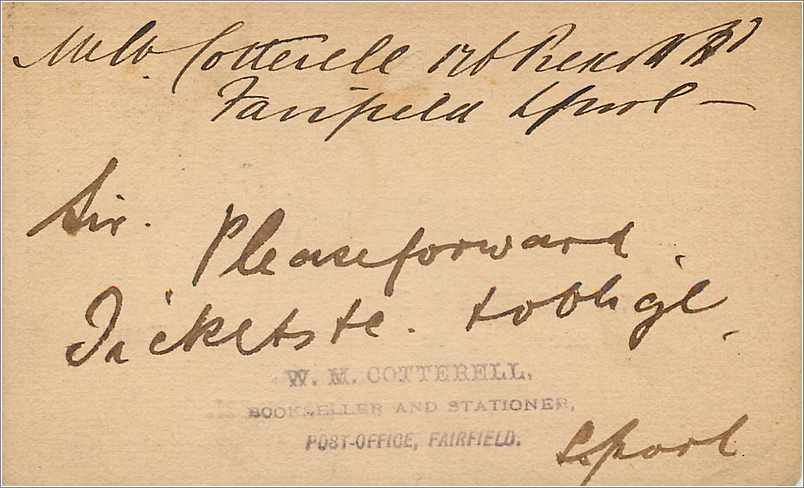 W. Cotterell 176 Prescot Rd
Fairfield Lpool —
Sir. Please forward
Tickets &c. & oblige
W. M. COTTERELL,
BOOKSELLER AND STATIONER,
POST-OFFICE, FAIRFIELD.
Lpool